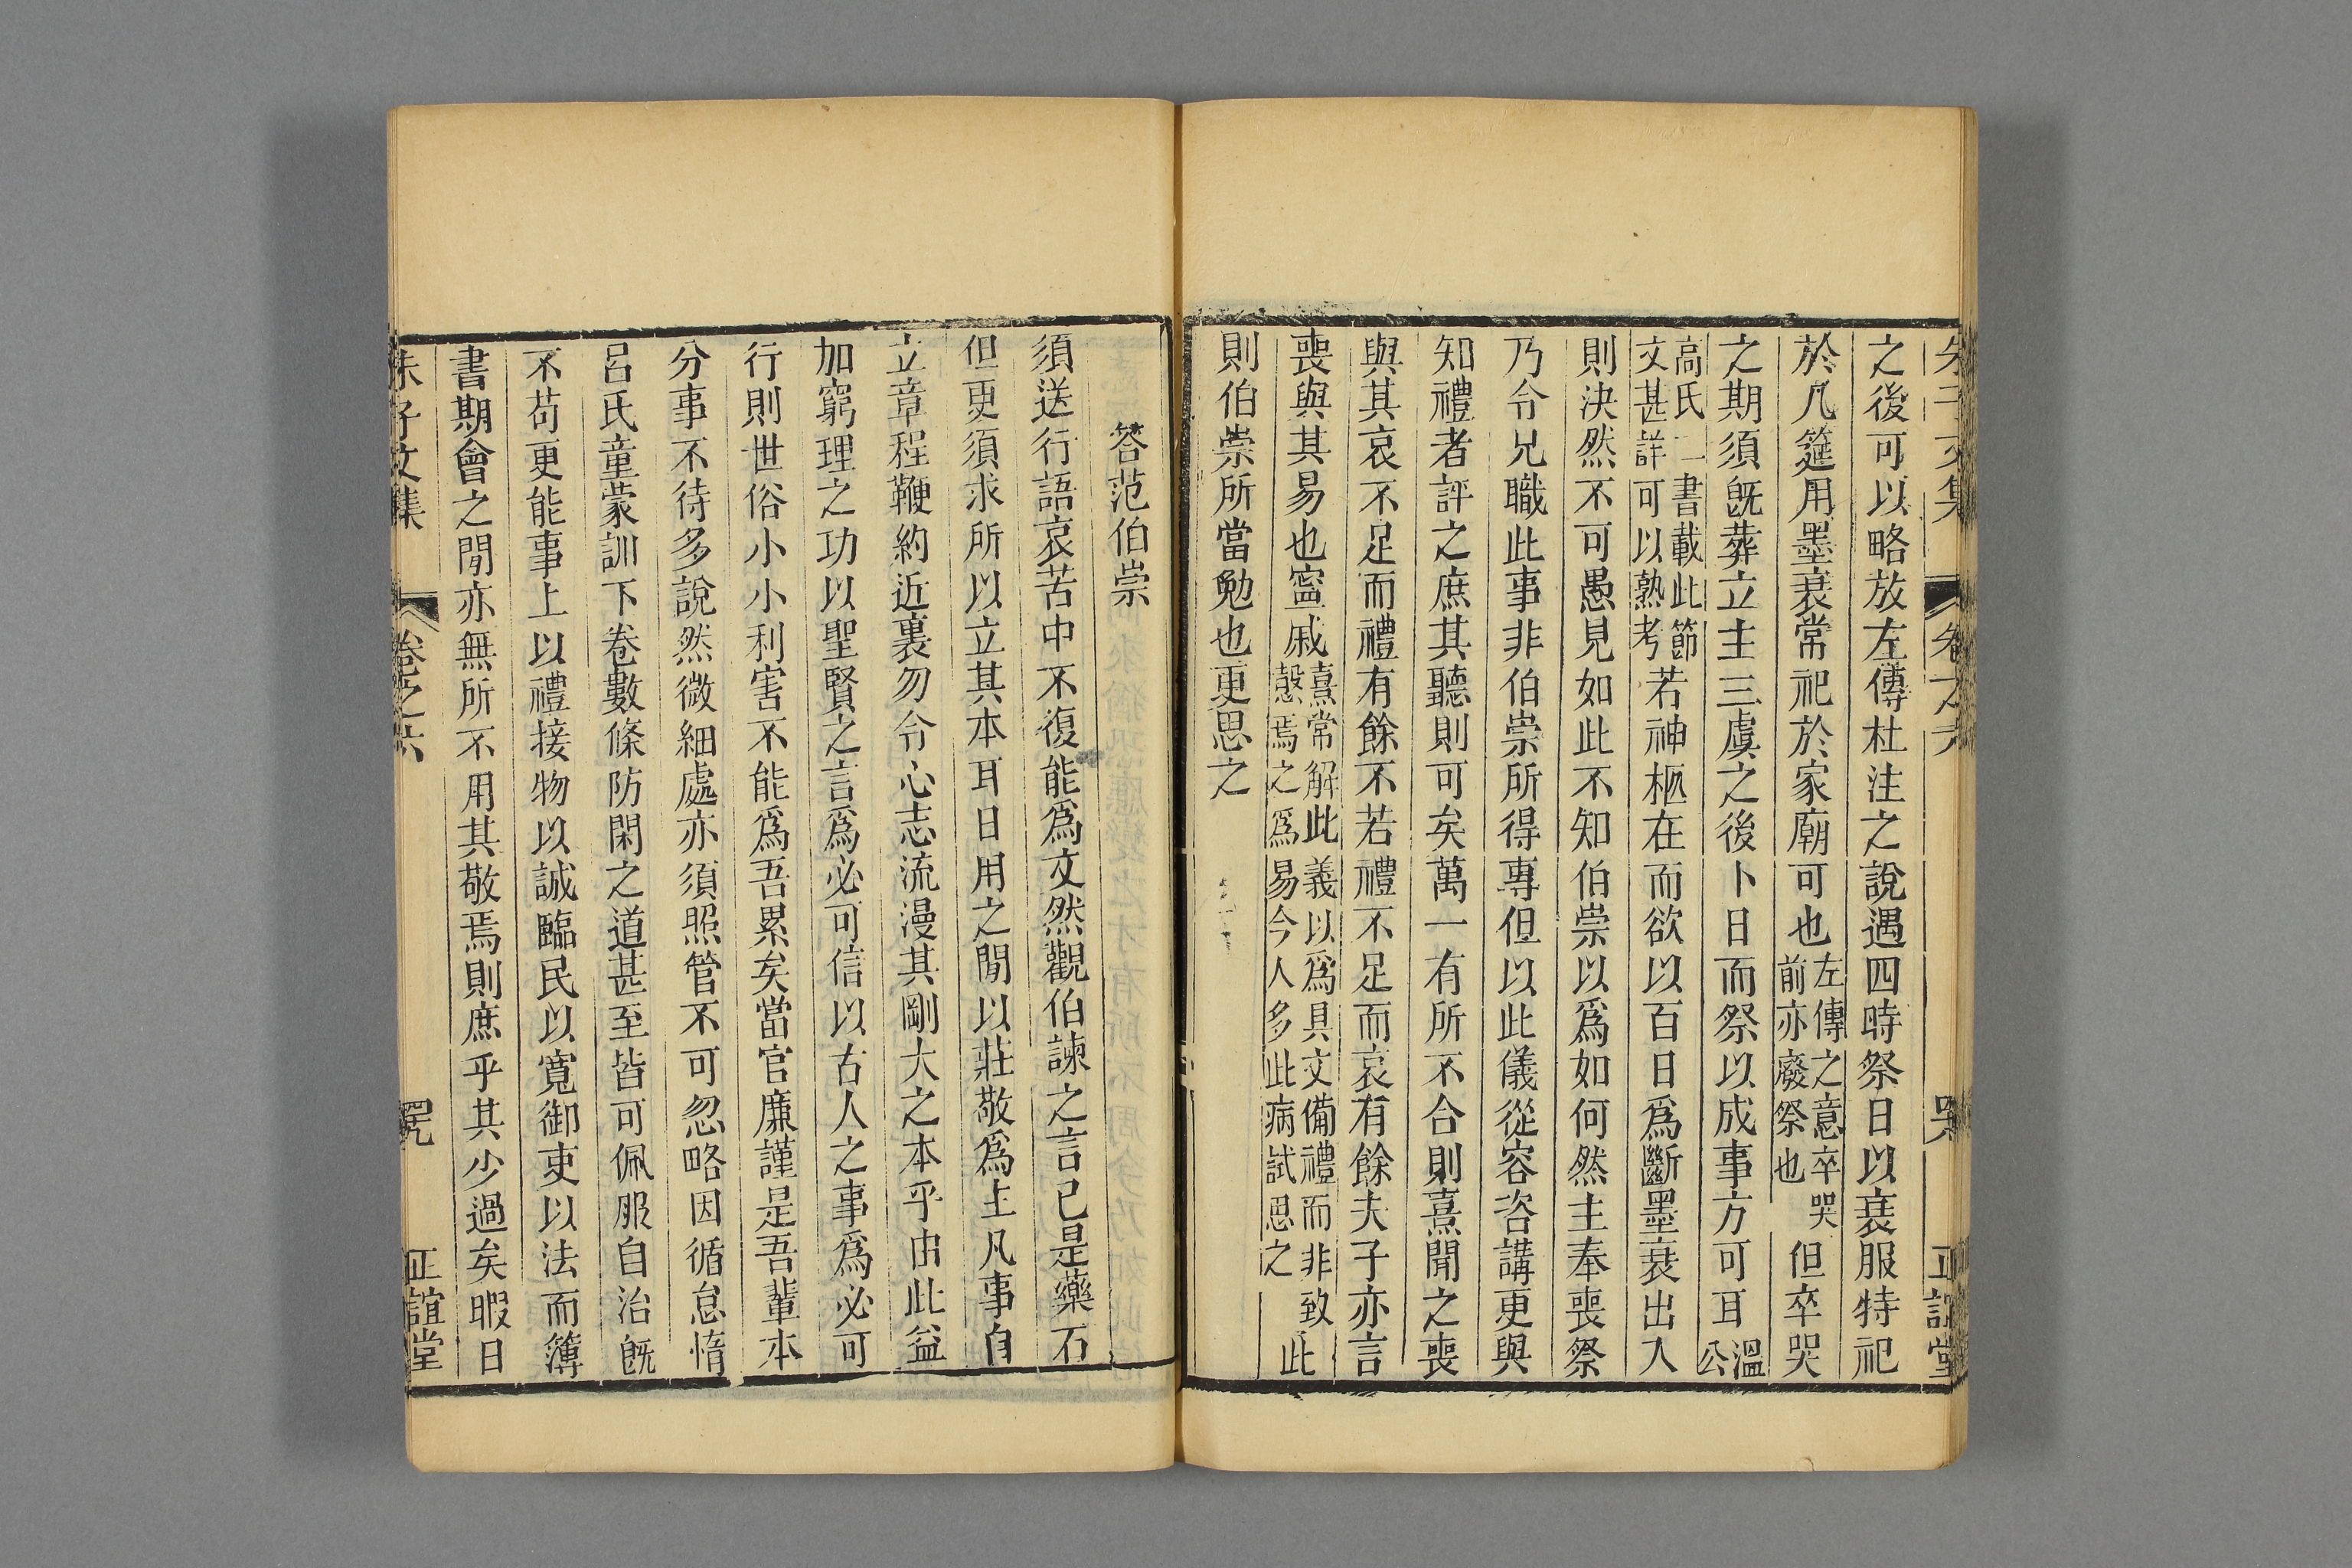 之後可以略放左傳杜注之說遇四時祭日以衰服特祀
於几筵用墨衰常祀於家廟可也左傳之意卒哭前亦廢祭也但卒哭
之期須旣葬立主三虞之後卜日而祭以成事方可耳溫公
高氏二書載此節文甚詳可以熟考若神柩在而欲以百日爲斷墨衰出入
則決然不可愚見如此不知伯崇以爲如何然主奉喪祭
乃令兄職此事非伯崇所得專但以此儀從容咨講更與
知禮者評之庶其聽則可矣萬一有所不合則熹聞之喪
與其哀不足而禮有餘不若禮不足而哀有餘夫子亦言
喪與其易也寍戚熹常解此義以爲具文備禮而非致慤焉之爲易今人多此病試思之此
則伯崇所當勉也更思之
答范伯崇
須送行語哀苦中不復能爲文然觀伯諫之言已是藥石
但更須求所以立其本耳日用之閒以莊敬爲主凡事自
立章程鞭約近裏勿令心志流漫其剛大之本乎由此益
加窮理之功以聖賢之言爲必可信以古人之事爲必可
行則世俗小小利害不能爲吾累矣當官廉謹是吾輩本
分事不待多說然微細處亦須照管不可忽略因循怠惰
呂氏童蒙訓下卷數條防閑之道甚至皆可佩服自治旣
不苟更能事上以禮接物以誠臨民以寬御吏以法而簿
書期會之閒亦無所不用其敬焉則庶乎其少過矣暇日
朱子文集 卷之六 正誼堂